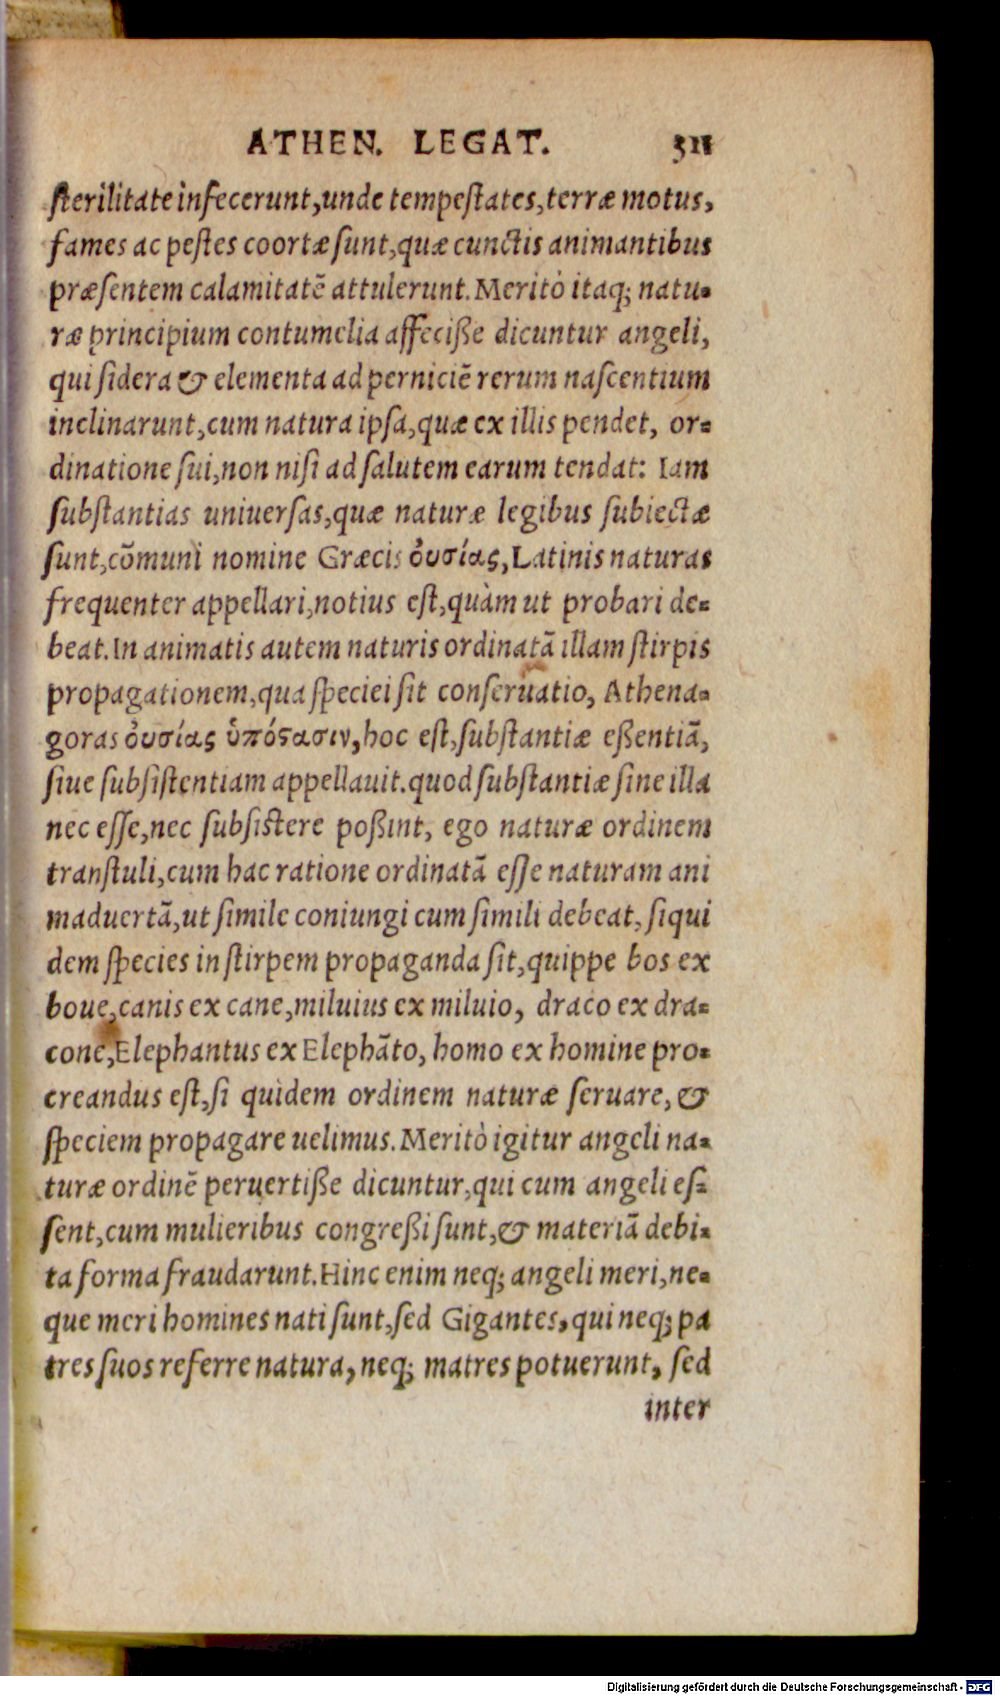 ATHEN. LEGAT. 311
sterilitate infecerunt, unde tempestates, terræ motus,
fames ac pestes coortæ sunt, quæ cunctis animantibus
præsentem calamitatē attulerunt. Meritò itaq; natu-
ræ principium contumelia affecisse dicuntur angeli,
qui sidera & elementa ad perniciē rerum nascentium
inclinarunt, cum natura ipsa, quæ ex illis pendet, or-
dinatione sui, non nisi ad salutem earum tendat: Iam
substantias uniuersas, quæ naturæ legibus subiectæ
sunt, cōmuni nomine Græcis ὀυσίας, Latinis naturas
frequenter appellari, notius est, quàm ut probari de-
beat. In animatis autem naturis ordinatā illam stirpis
propagationem, qua speciei sit conseruatio, Athena-
goras ὀυσίας ὑπόςασιν, hoc est, substantiæ essentiā,
siue subsistentiam appellauit. quod substantiæ sine illa
nec esse, nec subsistere possint, ego naturæ ordinem
transtuli, cum hac ratione ordinatā esse naturam ani
maduertā, ut simile coniungi cum simili debeat, siqui
dem species in stirpem propaganda sit, quippe bos ex
boue, canis ex cane, miluius ex miluio, draco ex dra-
cone, Elephantus ex Elephāto, homo ex homine pro-
creandus est, si quidem ordinem naturæ seruare, &
speciem propagare uelimus. Meritò igitur angeli na-
turæ ordinē peruertisse dicuntur, qui cum angeli es-
sent, cum mulieribus congressi sunt, & materiā debi-
ta forma fraudarunt. Hinc enim neq; angeli meri, ne-
que meri homines nati sunt, sed Gigantes, qui neq; pa
tres suos referre natura, neq; matres potuerunt, sed
inter
Digitalisierung gefördert durch die Deutsche Forschungsgemeinschaft - DFG